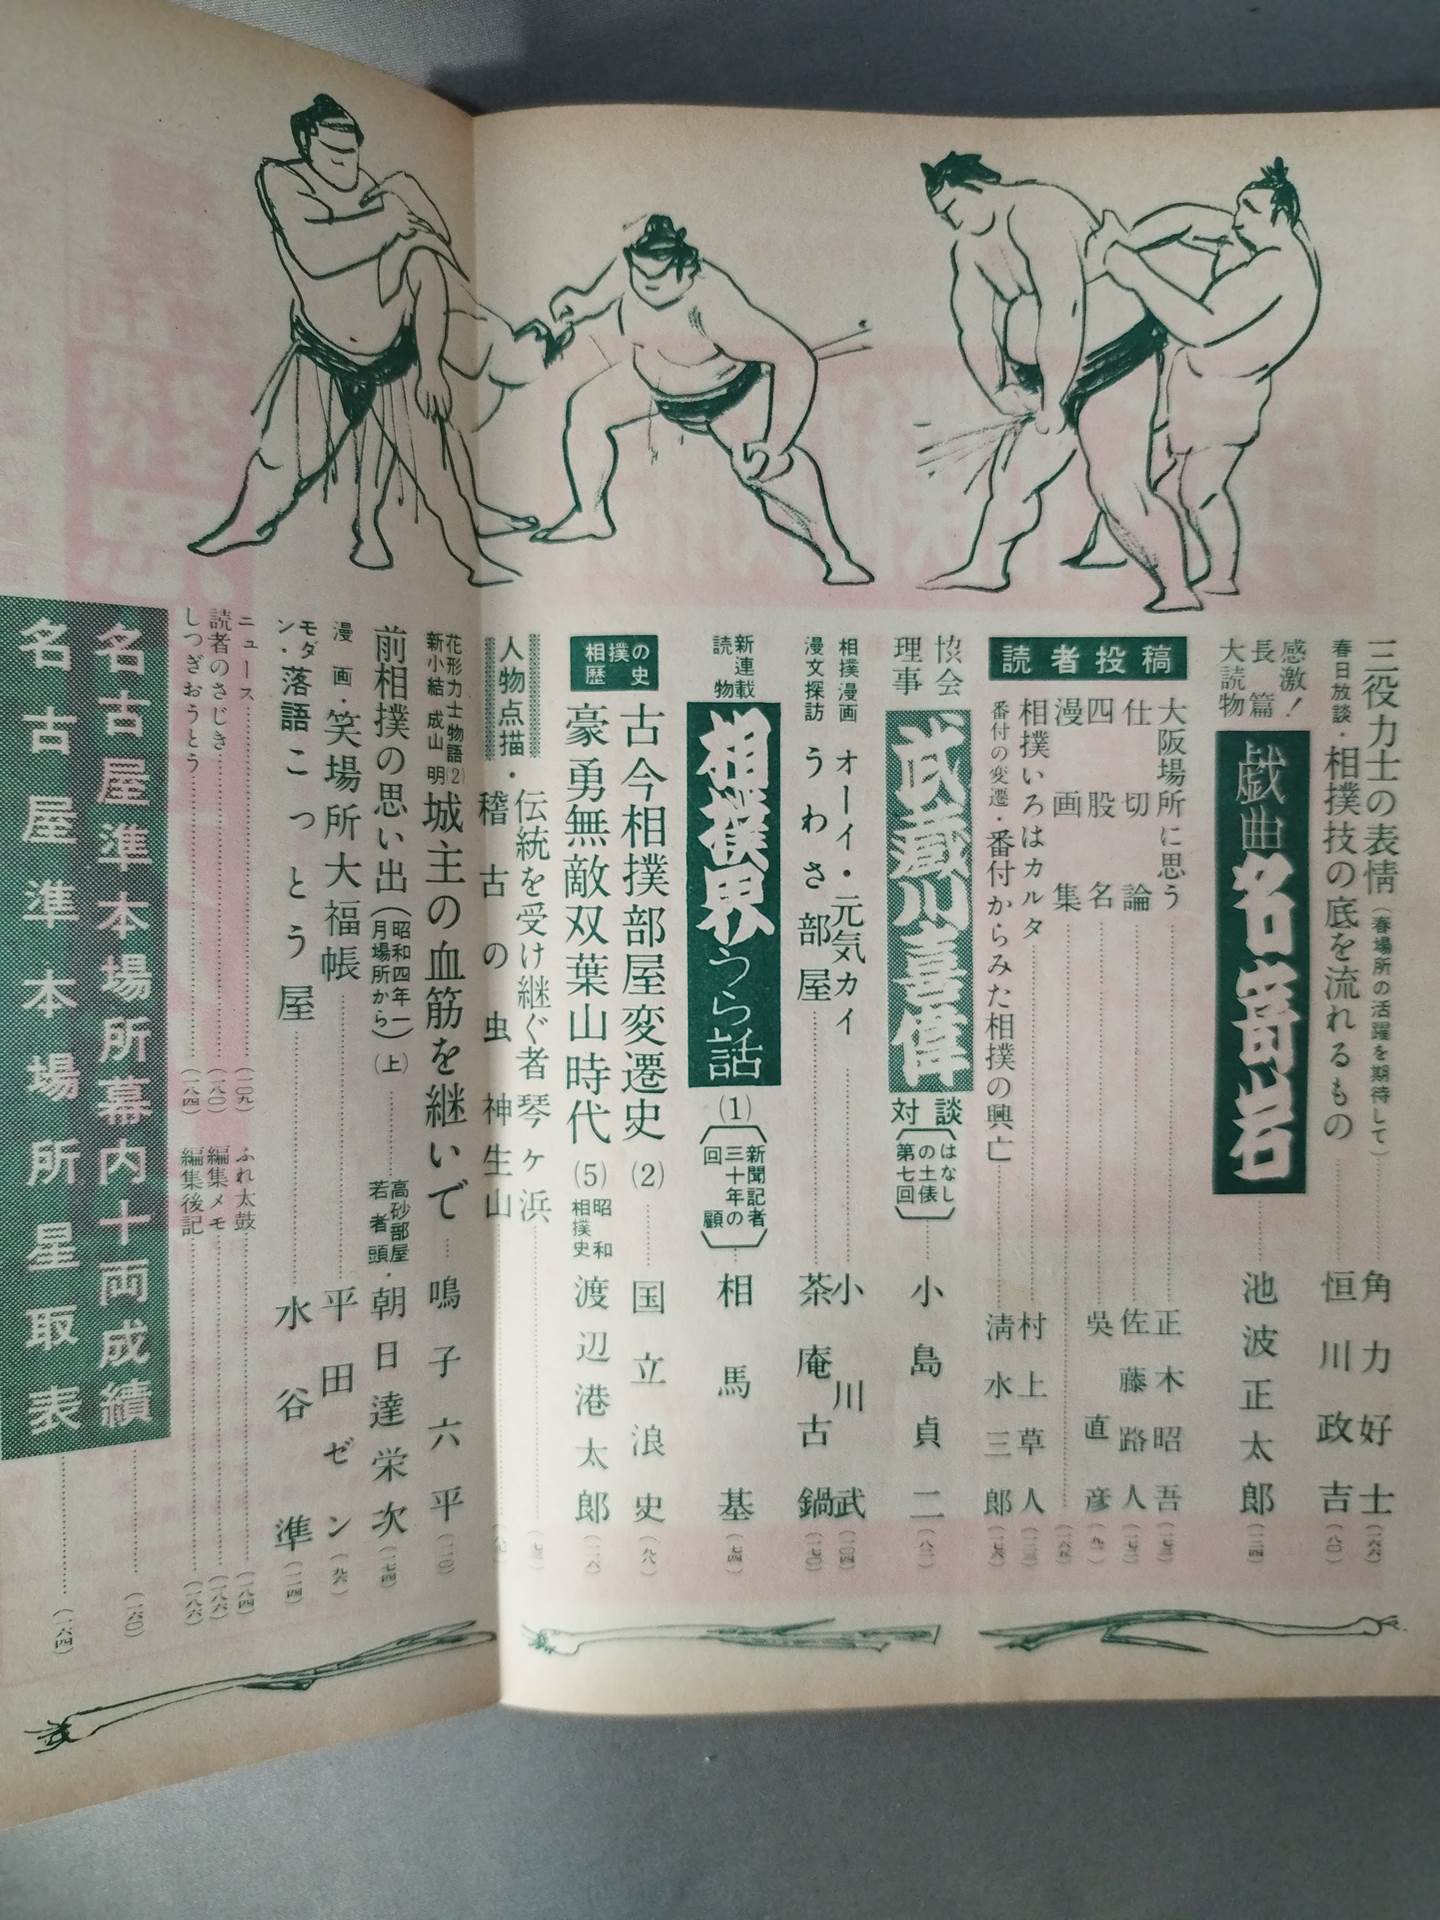 三役力士の表情（春場所の活躍を期待して）……角力好士（一六六）
春日放談・相撲技の底を流れるもの……恒川政吉（八〇）
感激！長篇大読物
戯曲名寄岩……池波正太郎
読者投稿
大阪場所に思う……正木昭吾
仕切論……佐藤路人
四股名……呉直彦
漫画集
相撲いろはカルタ……村上草人
番付の変遷・番付からみた相撲の興亡……清水三郎
協会理事
武蔵川喜偉
対談（はなしの土俵第七回）……小島貞二
相撲漫画 オーイ・元気カイ……小川武（一〇四）
漫文探訪 うわさ部屋……茶庵古鍋（一七〇）
新連載読物
相撲界うら話（1）（新聞記者三十年の回顧）……相馬基（七四）
相撲の歴史
古今相撲部屋変遷史（2）……国立浪史（九八）
豪勇無敵双葉山時代（5）昭和相撲史 渡辺港太郎（一一六）
人物点描・伝統を受け継ぐ者 琴ヶ浜
稽古の虫 神生山
花形力士物語（2）新小結 成山明 城主の血筋を継いで……鳴子六平
前相撲の思い出（昭和四年一月場所から）（上）……高砂部屋若者頭・朝日達栄次（一七四）
漫画・笑場所大福帳……平田ゼン（九六）
モダン・落語こっとう屋……水谷準（一一四）
ニュース……（一〇九）
読者のさじき……（一八〇）
しつぎおうとう……（一八四）
ふれ太鼓……（一八四）
編集メモ……（一八六）
編集後記……（一八六）
名古屋準本場所幕内十両成績……（一六〇）
名古屋準本場所星取表……（一六四）